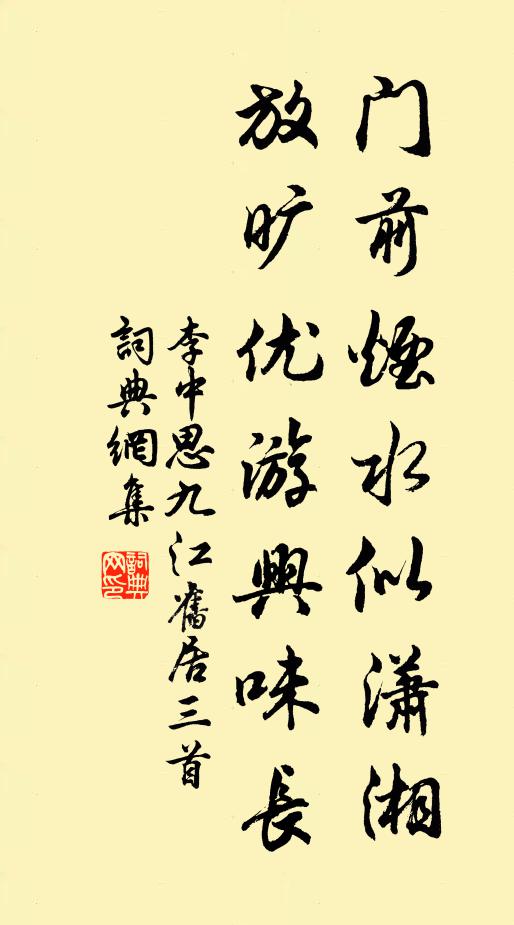 门前煙水似潇湘
放旷优游興味長
李中思九江舊居三首
詞典網集
詞典网印